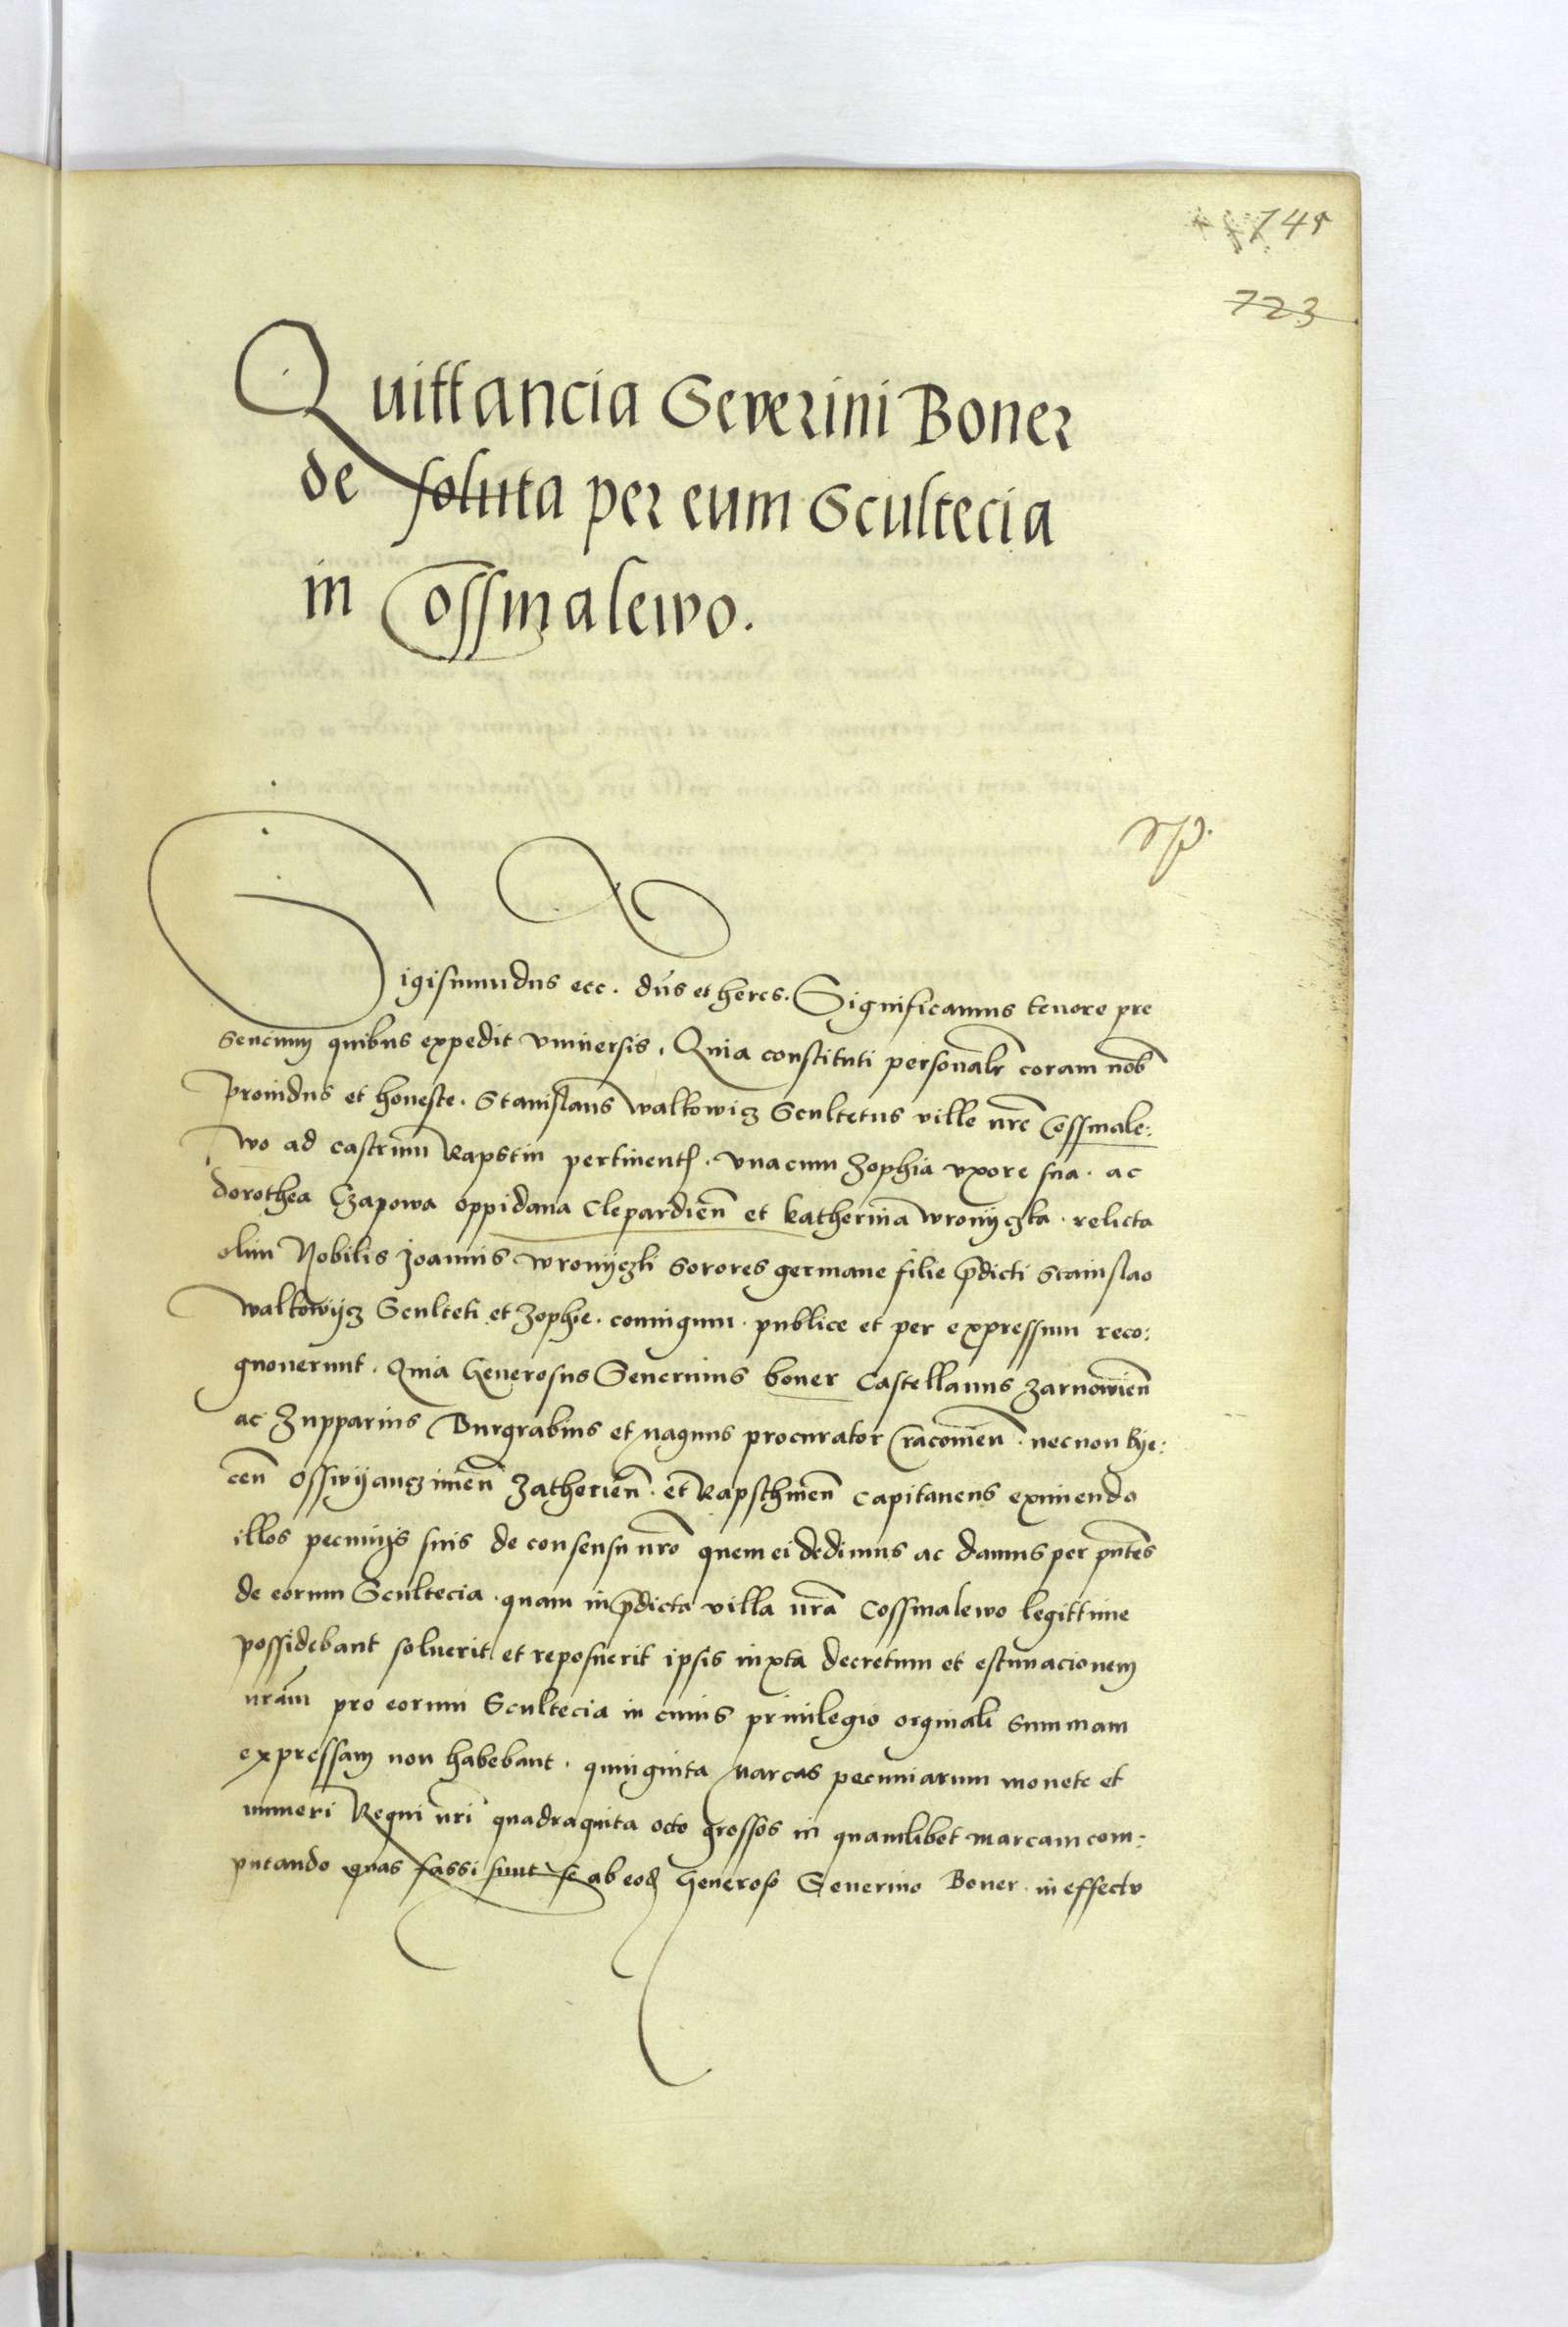 745
723
Quittancia Severini Boner
de soluta per eum Scultecia
in Cossmalewo.
Sigismundus ecc. dns et heres. Significamus tenore pre
sencium quibus expedit vniuersis. Quia constituti personalr coram nob
Prouidus et honeste. Stanislaus walkowicz Scultetus ville nre Cossmale:
wo ad castrum Rapstin pertinent. vnacum Zophia vxore sua. ac
dorothea Czapowa oppidana Clepardien et katherina wronyczka. relicta
olim Nobilis Joannis wronyczki sorores germane filie pdicti Stanislao
walkowycz Sculteti et Zophie. coniugum. publice et per expressum reco:
gnouerunt. Quia Generosus Seuerinus boner Castellanus Zarnowien
ac Zupparius Burgrabius et magnus procurator Cracouien. necnon bye:
cen Osswyanczimen Zatherien. et Rapschinen Capitaneus eximendo
illos pecunys suis de consensu nro quem ei dedimus ac damus per pntes
de eorum Scultecia. quam in pdicta villa nra Cossmalewo legittime
possidebant soluerit et reposuerit ipsis iuxta decretum et estimacionem
nram pro eorum Scultecia in cuius priuilegio orginali summam
expressam non habebant. quinginta marcas pecuniarum monete et
numeri Regni nri quadraginta octo grossos in quamlibet marcam com:
putando quas fassi sunt se ab eod Generoso Seuerino Boner. in effectu